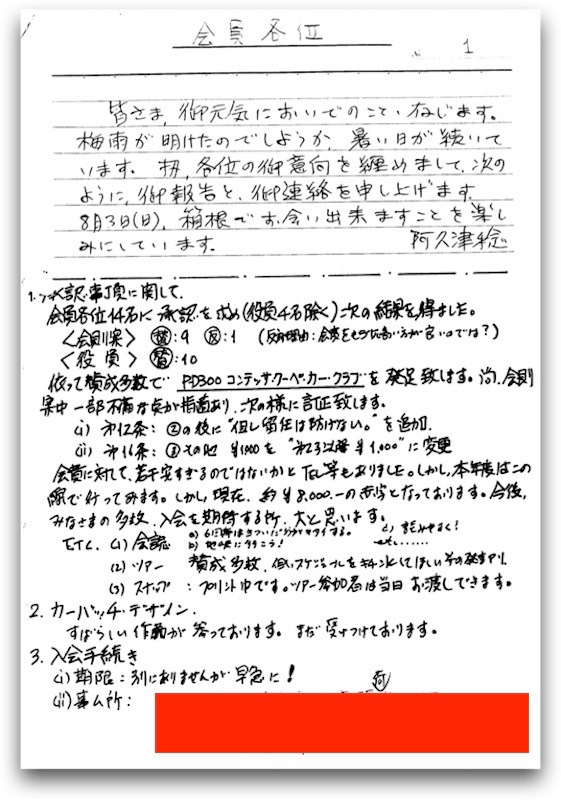 会員各位
1
皆さま,御元気においでのことと存じます。
梅雨が明けたのでしょうか,暑い日が続いて
います。扨,各位の御意向を纏めまして,次の
ように,御報告と,御連絡を申し上げます。
8月3日(日),箱根でお会い出来ますことを楽し
みにしています。 阿久津
1. 承認事項に関して.
会員各位14名に承認を求め(役員4名除く)次の結果を得ました。
〈会則案〉 賛:9 反:1 (反対理由:会費をもう少し高い方が宜いのでは?)
〈役員〉 賛:10
依って賛成多数で PD300コンテッサ・クーペ・カー・クラブ を発足致します。尚,会則
案中一部不備な点が指摘あり,次の様に訂正致します。
(i) 第12条: ②の後に"但し留任は妨げない。"を追加.
(ii) 第16条: ③その他 ¥1,000を "以降 ¥1,000"に変更
会費に対して,若干安すぎるのではないかとTEL等もありました。しかし,本年度はこの
線で行ってみます。しかし現在,約¥8,000.-の赤字となっております。今後,
みなさまの多数,入会を期待する所,大と思います。
ETC. (1) 会誌 a) b) c)
(2) ツアー 賛成多数,但しスケジュールをキチンとしてほしい
(3) スナップ : プリント中です。ツアー参加者は当日お渡しできます。
2. カーバッチ・デザイン.
すばらしい作品が寄っております。まだ受けつけております。
3. 入会手続き
(i) 期限:別にありませんが早急に!
(ii) 事ム所: